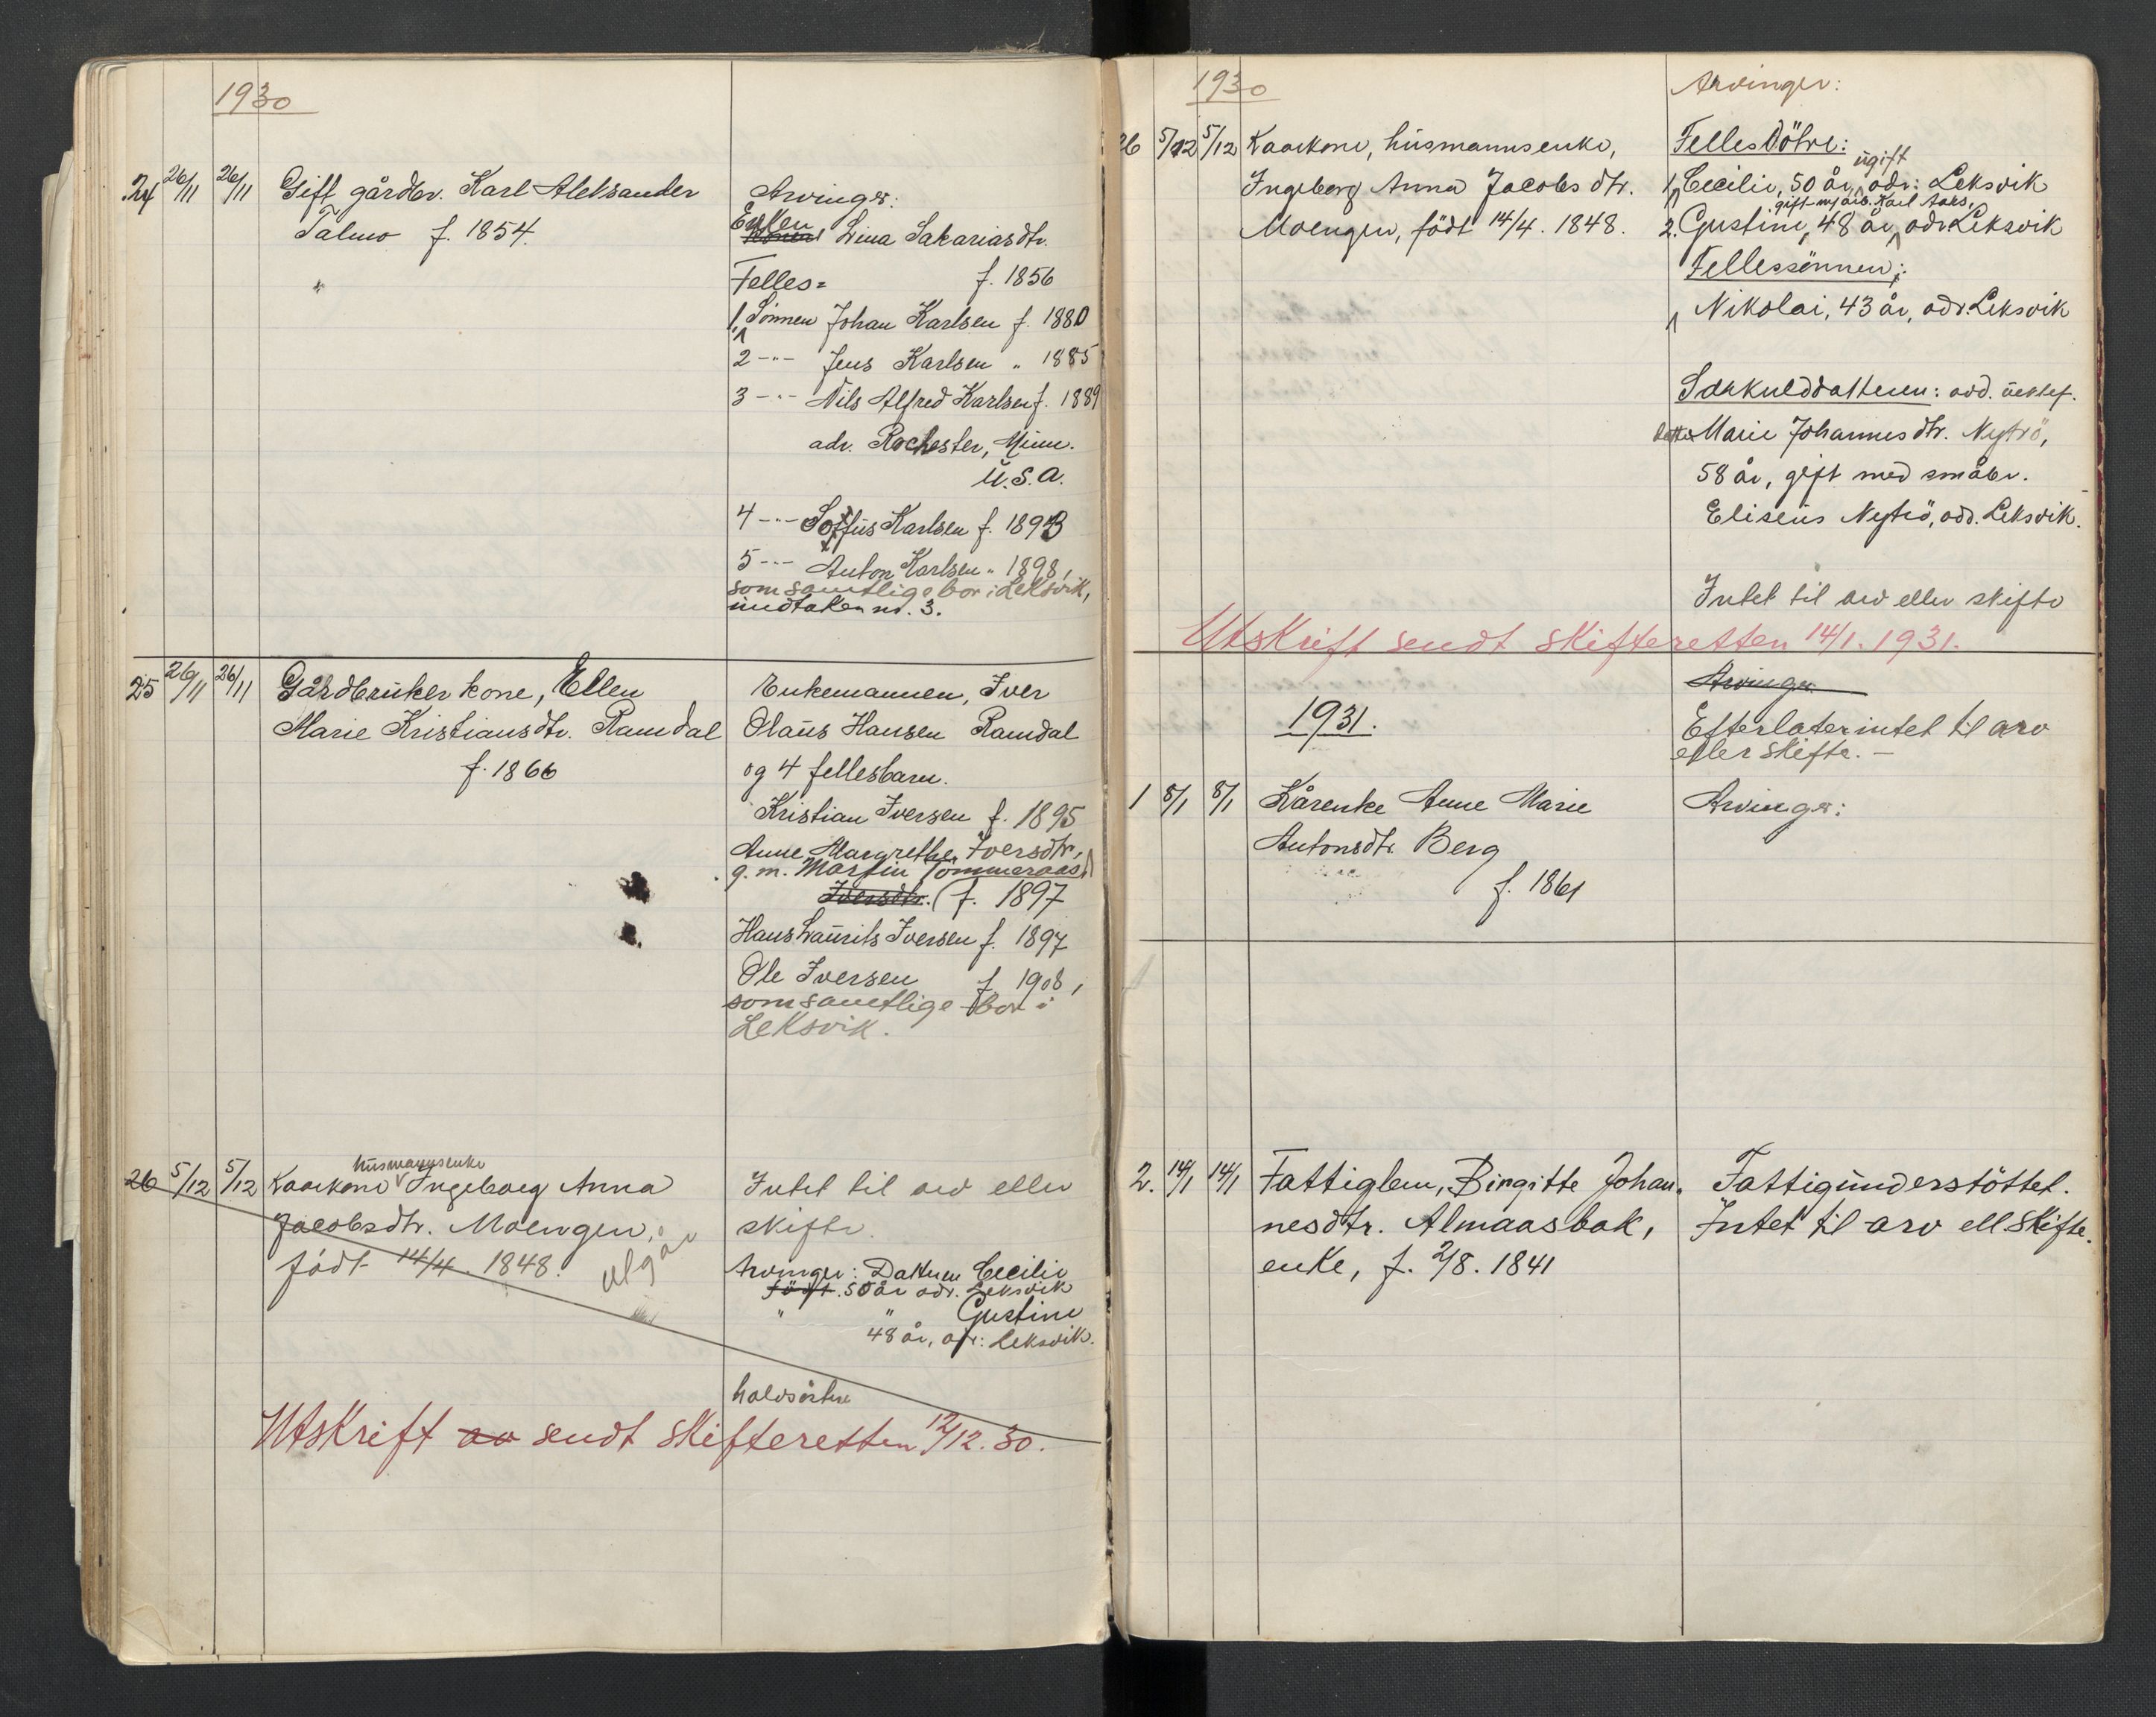 1930
24 26/11 26/11 Gift gårdbr. Karl Aleksander
Talmo f. 1854.
Arvinger:
Enken
Konen Lina Sakariasdtr.
Felles= f. 1856
1, Sönnen Johan Karlsen f. 1880
2 -"- Jens Karlsen " 1885
3 -"- Nils Alfred Karlsen f. 1889
adr. Rochester, Minn.
U.S.A.
4 -"- Soffus Karlsen f. 1893
5 -"- Anton Karlsen " 1898,
som samtlige bor i Leksvik,
undtaken nr. 3.
25 26/11 26/11 Gårdbruker kone, Ellen
Marie Kristiansdtr. Ramdal
f. 1866
Enkemannen, Iver
Olaus Hansen Ramdal
og 4 fellesbarn.
Kristian Iversen f. 1895
Anne Margrethe Iversdtr,
g. m. Martin Tömmeraas
Iversdtr. f. 1897
Hans Laurits Iversen f. 1897
Ole Iversen f. 1908,
som samtlige bor i
Leksvik.
husmannsenke
26 5/12 5/12 Kaarkone Ingeborg Anna
Jacobsdtr. Moengen,
födt 14/4. 1848.
utgår
Intet til arv eller
skifte.
Arvinger: Datteren Cecilie
födt. 50 år adr. Leksvik
" " Gustine
48 år, adr: Leksvik.
halvsöstre
Utskrift av sendt skifteretten 12/12. 30.
1930
Arvinger:
26 5/12 5/12 Kaarkone, husmannsenke,
Ingeborg Anna Jacobsdtr.
Moengen, födt 14/4. 1848.
Felles Dötre:
ugift
1, Cecilie, 50 år, adr: Leksvik
gift m/ arb. Karl Aaks,
2. Gustine, 48 år, adr. Leksvik
Fellessönnen:
Nikolai, 43 år, adr. Leksvik
Særkulddatteren: avd.
Marie Johannesdtr. Nytrö,
58 år, gift med småbr.
Eliseus Nytrö, add. Leksvik.
Intet til arv eller skifte
Utskrift sendt skifteretten 14/1. 1931.
Arvinger
1931.
Efterlater intet til arv
eller skifte. –
1 8/1 8/1 Kårenke Anne Marie
Antonsdtr. Berg
f. 1861
Arvinger:
2. 14/1 14/1 Fattiglem, Birgitte Johan-
nesdtr. Almaasbak,
enke, f. 2/8. 1841
Fattigunderstöttet.
Intet til arv ell skifte.